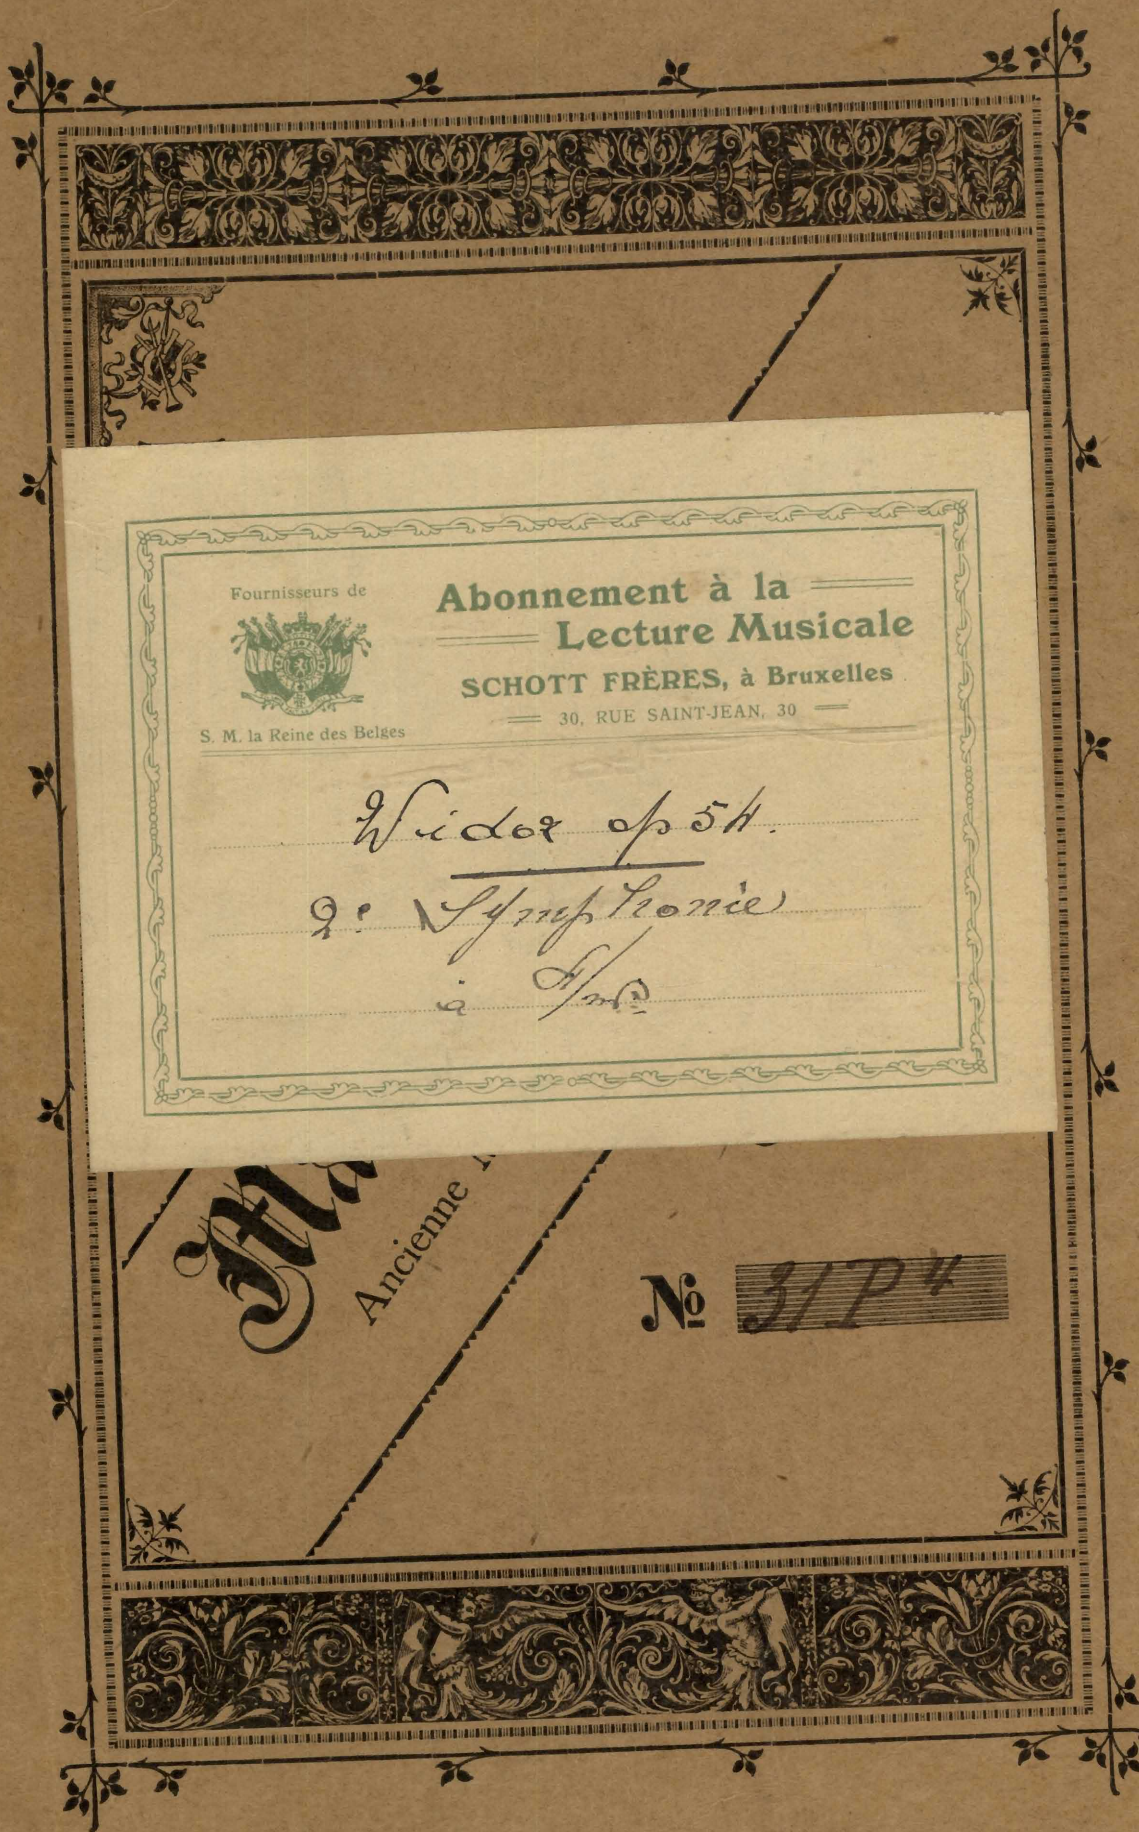 Fournisseurs de
S. M. la Reine des Belges
Abonnement à la
Lecture Musicale
SCHOTT FRÈRES, à Bruxelles
30, RUE SAINT-JEAN, 30
Widor op 54.
2e Symphonie
à 4/ms
Ma
Ancienne
No 31P4